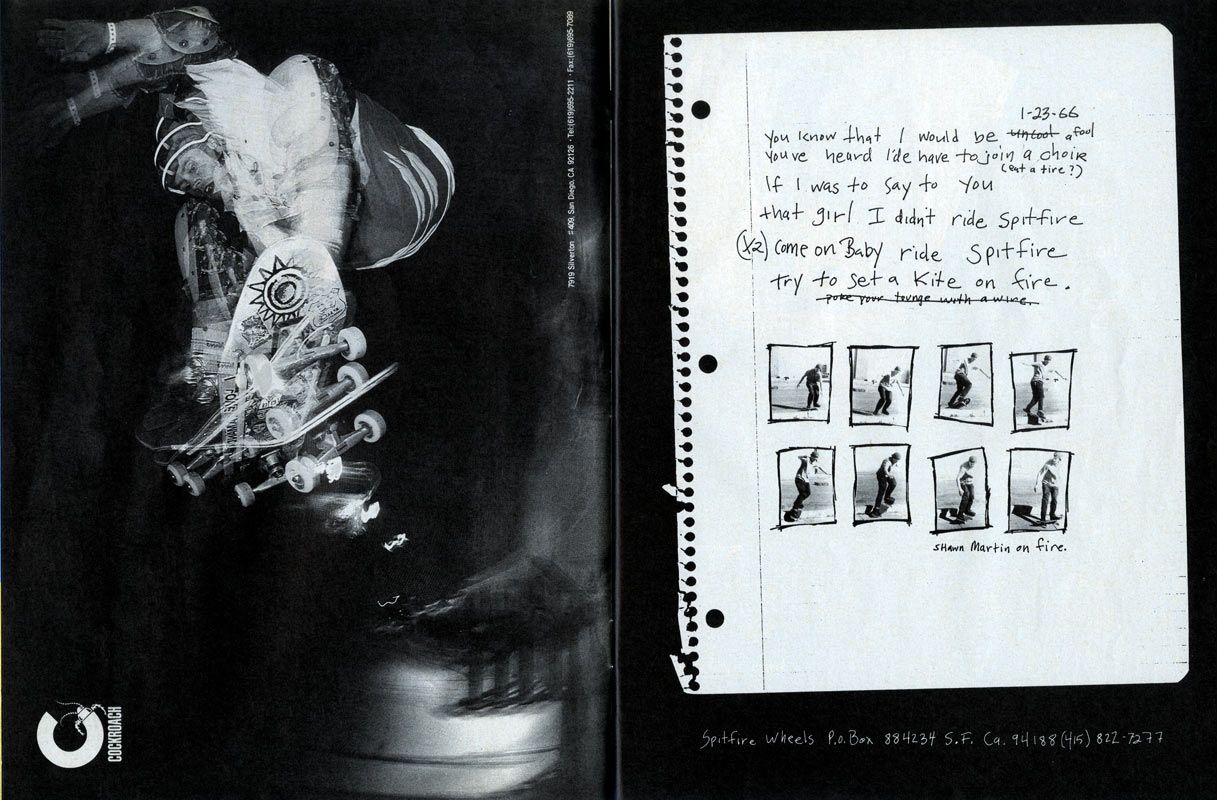 7919 Silverton #409, San Diego, CA 92126 · Tel:(619)695-2211 · Fax:(619)695-7089
COCKROACH
1-23-66
you know that I would be uncool a fool
youve heard I'de have to join a choir
(eat a tire?)
If I was to say to you
that girl I didn't ride spitfire
(x2) come on Baby ride Spitfire
try to set a Kite on fire.
poke your tounge with a wire.
SHAWN Martin on fire.
Spitfire Wheels P.O. Box 884234 S.F. Ca. 94188 (415) 822-7277